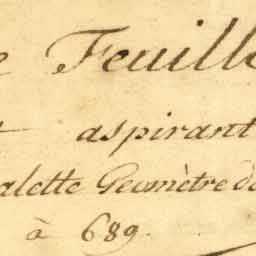 e Feuille
t aspirant
alette Geomètre de
à 689.